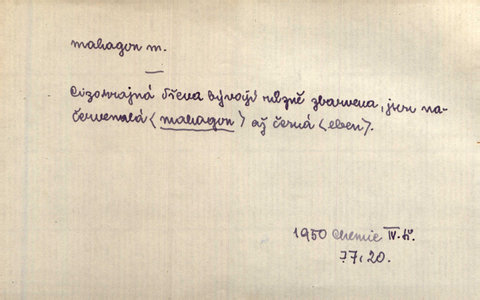 mahagon m.
—
Cizokrajná dřeva bývají různě zbarvena, jsou na-
červenalá (mahagon) až černá (eben).
1950 Chemie IV. tř.
77, 20.